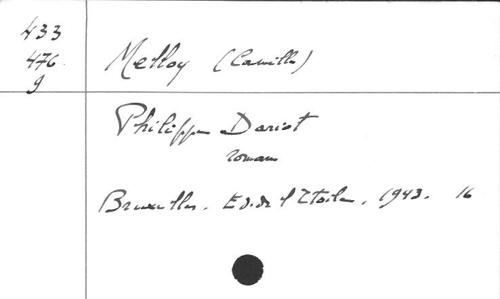 433
476.
9
Melloy (Camille)
Philippe Dariot
roman
Bruxelles. Ed. de l'Etoile. 1943. 16